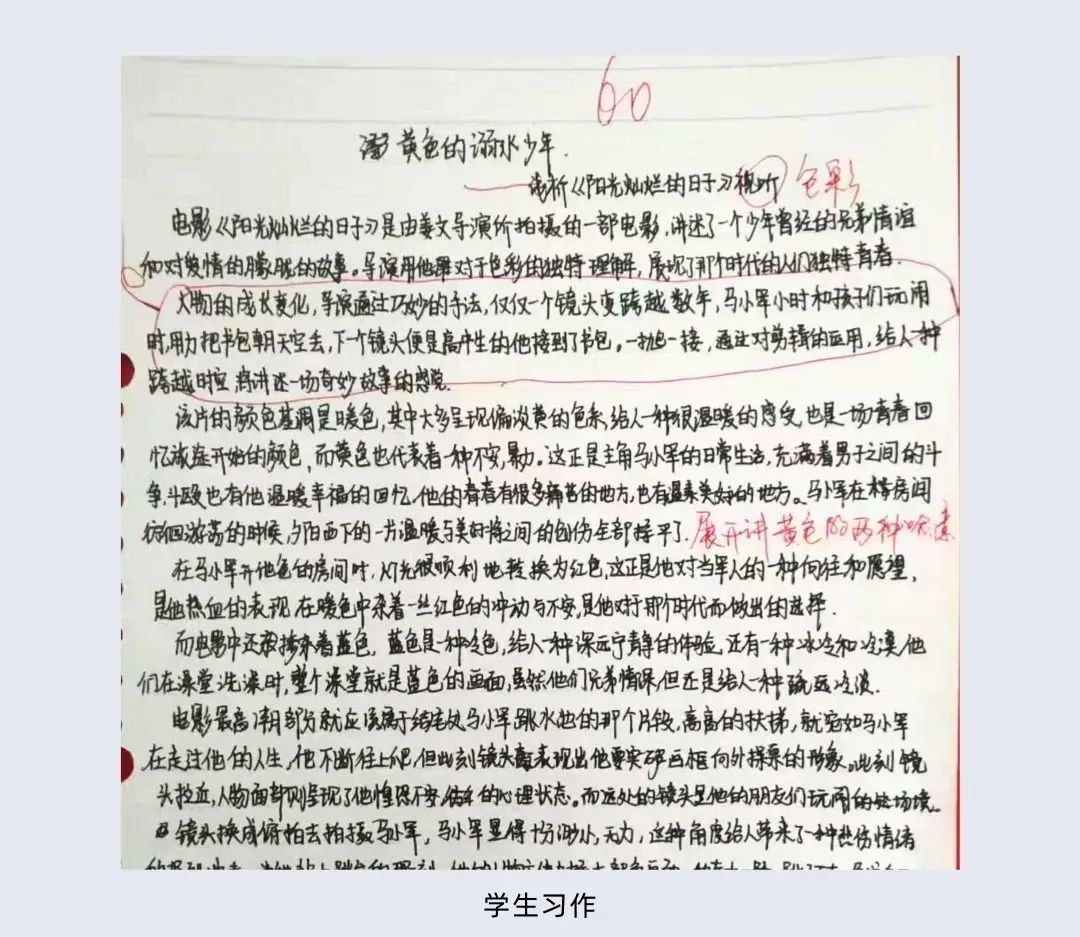 60
黄色的溺水少年.
——浅析《阳光灿烂的日子》视听 色彩
电影《阳光灿烂的日子》是由姜文导演所拍摄的一部电影,讲述了一个少年曾经的兄弟情谊
和对爱情的朦胧的故事。导演用他对于色彩的独特理解,展现了那个时代的人们独特青春.
人物的成长变化,导演通过巧妙的手法,仅仅一个镜头变跨越数年,马小军小时和孩子们玩闹
时,用力把书包朝天空去,下一个镜头便是高中生的他接到了书包。一抛一接,通过对剪辑的运用,给人一种
跨越时空 将讲述一场奇妙故事的感觉.
该片的颜色基调是暖色,其中大多呈现偏淡黄的色系,给人一种很温暖的感受,也是一场青春回
忆旅途开始的颜色,而黄色也代表着一种不安,暴力。这正是主角马小军的日常生活,充满着男子之间的斗
争,斗殴也有他温暖幸福的回忆,他的青春有很多痛苦的地方,也有温柔美好的地方。马小军在楼房间
徘徊游荡的时候,夕阳西下的一片温暖与美好将之间的创伤全部抚平了. 展开讲黄色的两种
在马小军开他爸的房间时,灯光很顺利地转换为红色,这正是他对当军人的一种向往和愿望,
是他热血的表现 在暖色中杂着一丝红色的冲动与不安,是他对于那个时代而做出的选择.
而电影中还掺杂着蓝色,蓝色是一种冷色,给人一种深远宁静的体验,还有一种冰冷和冷漠,他
们在澡堂洗澡时,整个澡堂就是蓝色的画面,虽然他们兄弟情深,但还是给人一种疏远冷淡.
电影最高潮部分就应该属于结尾处马小军跳水池的那个片段,高高的扶梯,就宛如马小军
在走过他的人生,他不断往上爬,但此刻镜头表现出他要突破画框向外探索的形象。此刻镜
头拉近,人物面部则呈现了他惶恐不安,的心理状态。而远处的镜头是他的朋友们玩闹的场境。
镜头换成俯拍去拍摄马小军,马小军显得十分渺小,无力,这种角度给人带来了一种悲伤情绪
学生习作